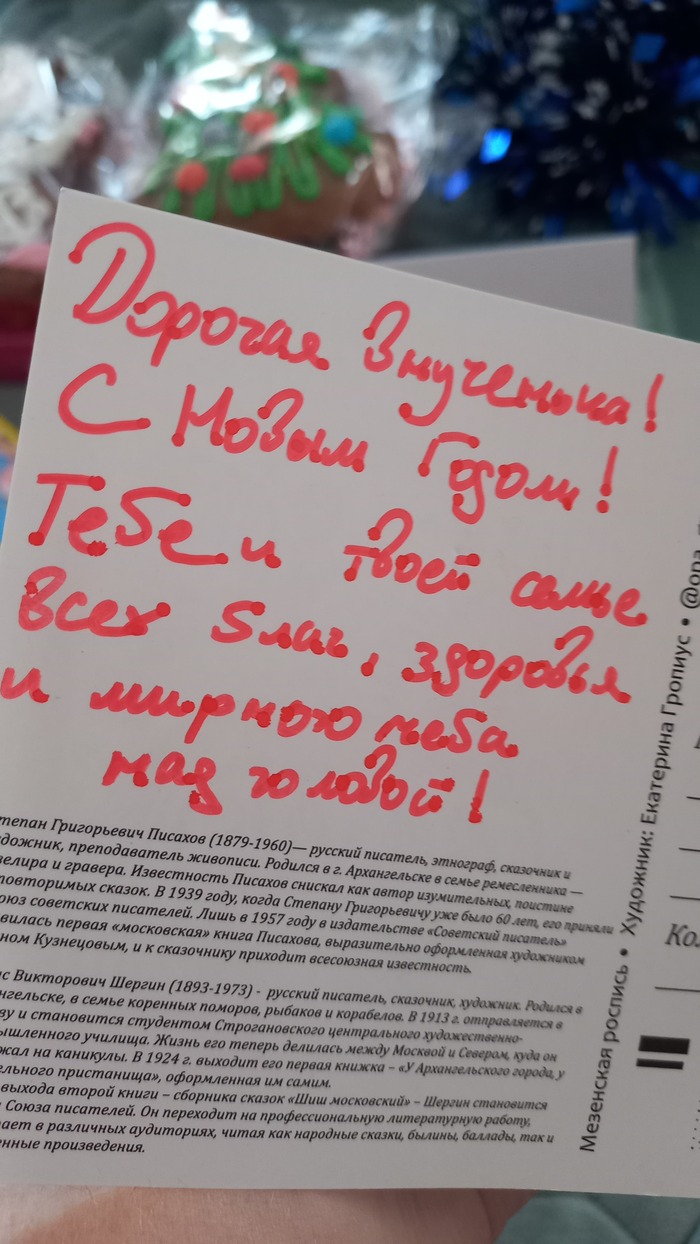 Дорогая Внученька!
С Новым Годом!
Тебе и твоей семье
всех благ, здоровья
и мирного неба
над головой!
тепан Григорьевич Писахов (1879-1960)— русский писатель, этнограф, сказочник и
дожник, преподаватель живописи. Родился в г. Архангельске в семье ремесленника —
велира и гравера. Известность Писахов снискал как автор изумительных, поистине
повторимых сказок. В 1939 году, когда Степану Григорьевичу уже было 60 лет, его приняли
оюз советских писателей. Лишь в 1957 году в издательстве «Советский писатель»
вилась первая «московская» книга Писахова, выразительно оформленная художником
ном Кузнецовым, и к сказочнику приходит всесоюзная известность.
ис Викторович Шергин (1893-1973) - русский писатель, сказочник, художник. Родился в
нгельске, в семье коренных поморов, рыбаков и корабелов. В 1913 г. отправляется в
ву и становится студентом Строгановского центрального художественно-
ышленного училища. Жизнь его теперь делилась между Москвой и Севером, куда он
жал на каникулы. В 1924 г. выходит его первая книжка – «У Архангельского города, у
ельного пристанища», оформленная им самим.
выхода второй книги – сборника сказок «Шиш московский» – Шергин становится
Союза писателей. Он переходит на профессиональную литературную работу,
ает в различных аудиториях, читая как народные сказки, былины, баллады, так и
енные произведения.
Мезенская роспись • Художник: Екатерина Гропиус •